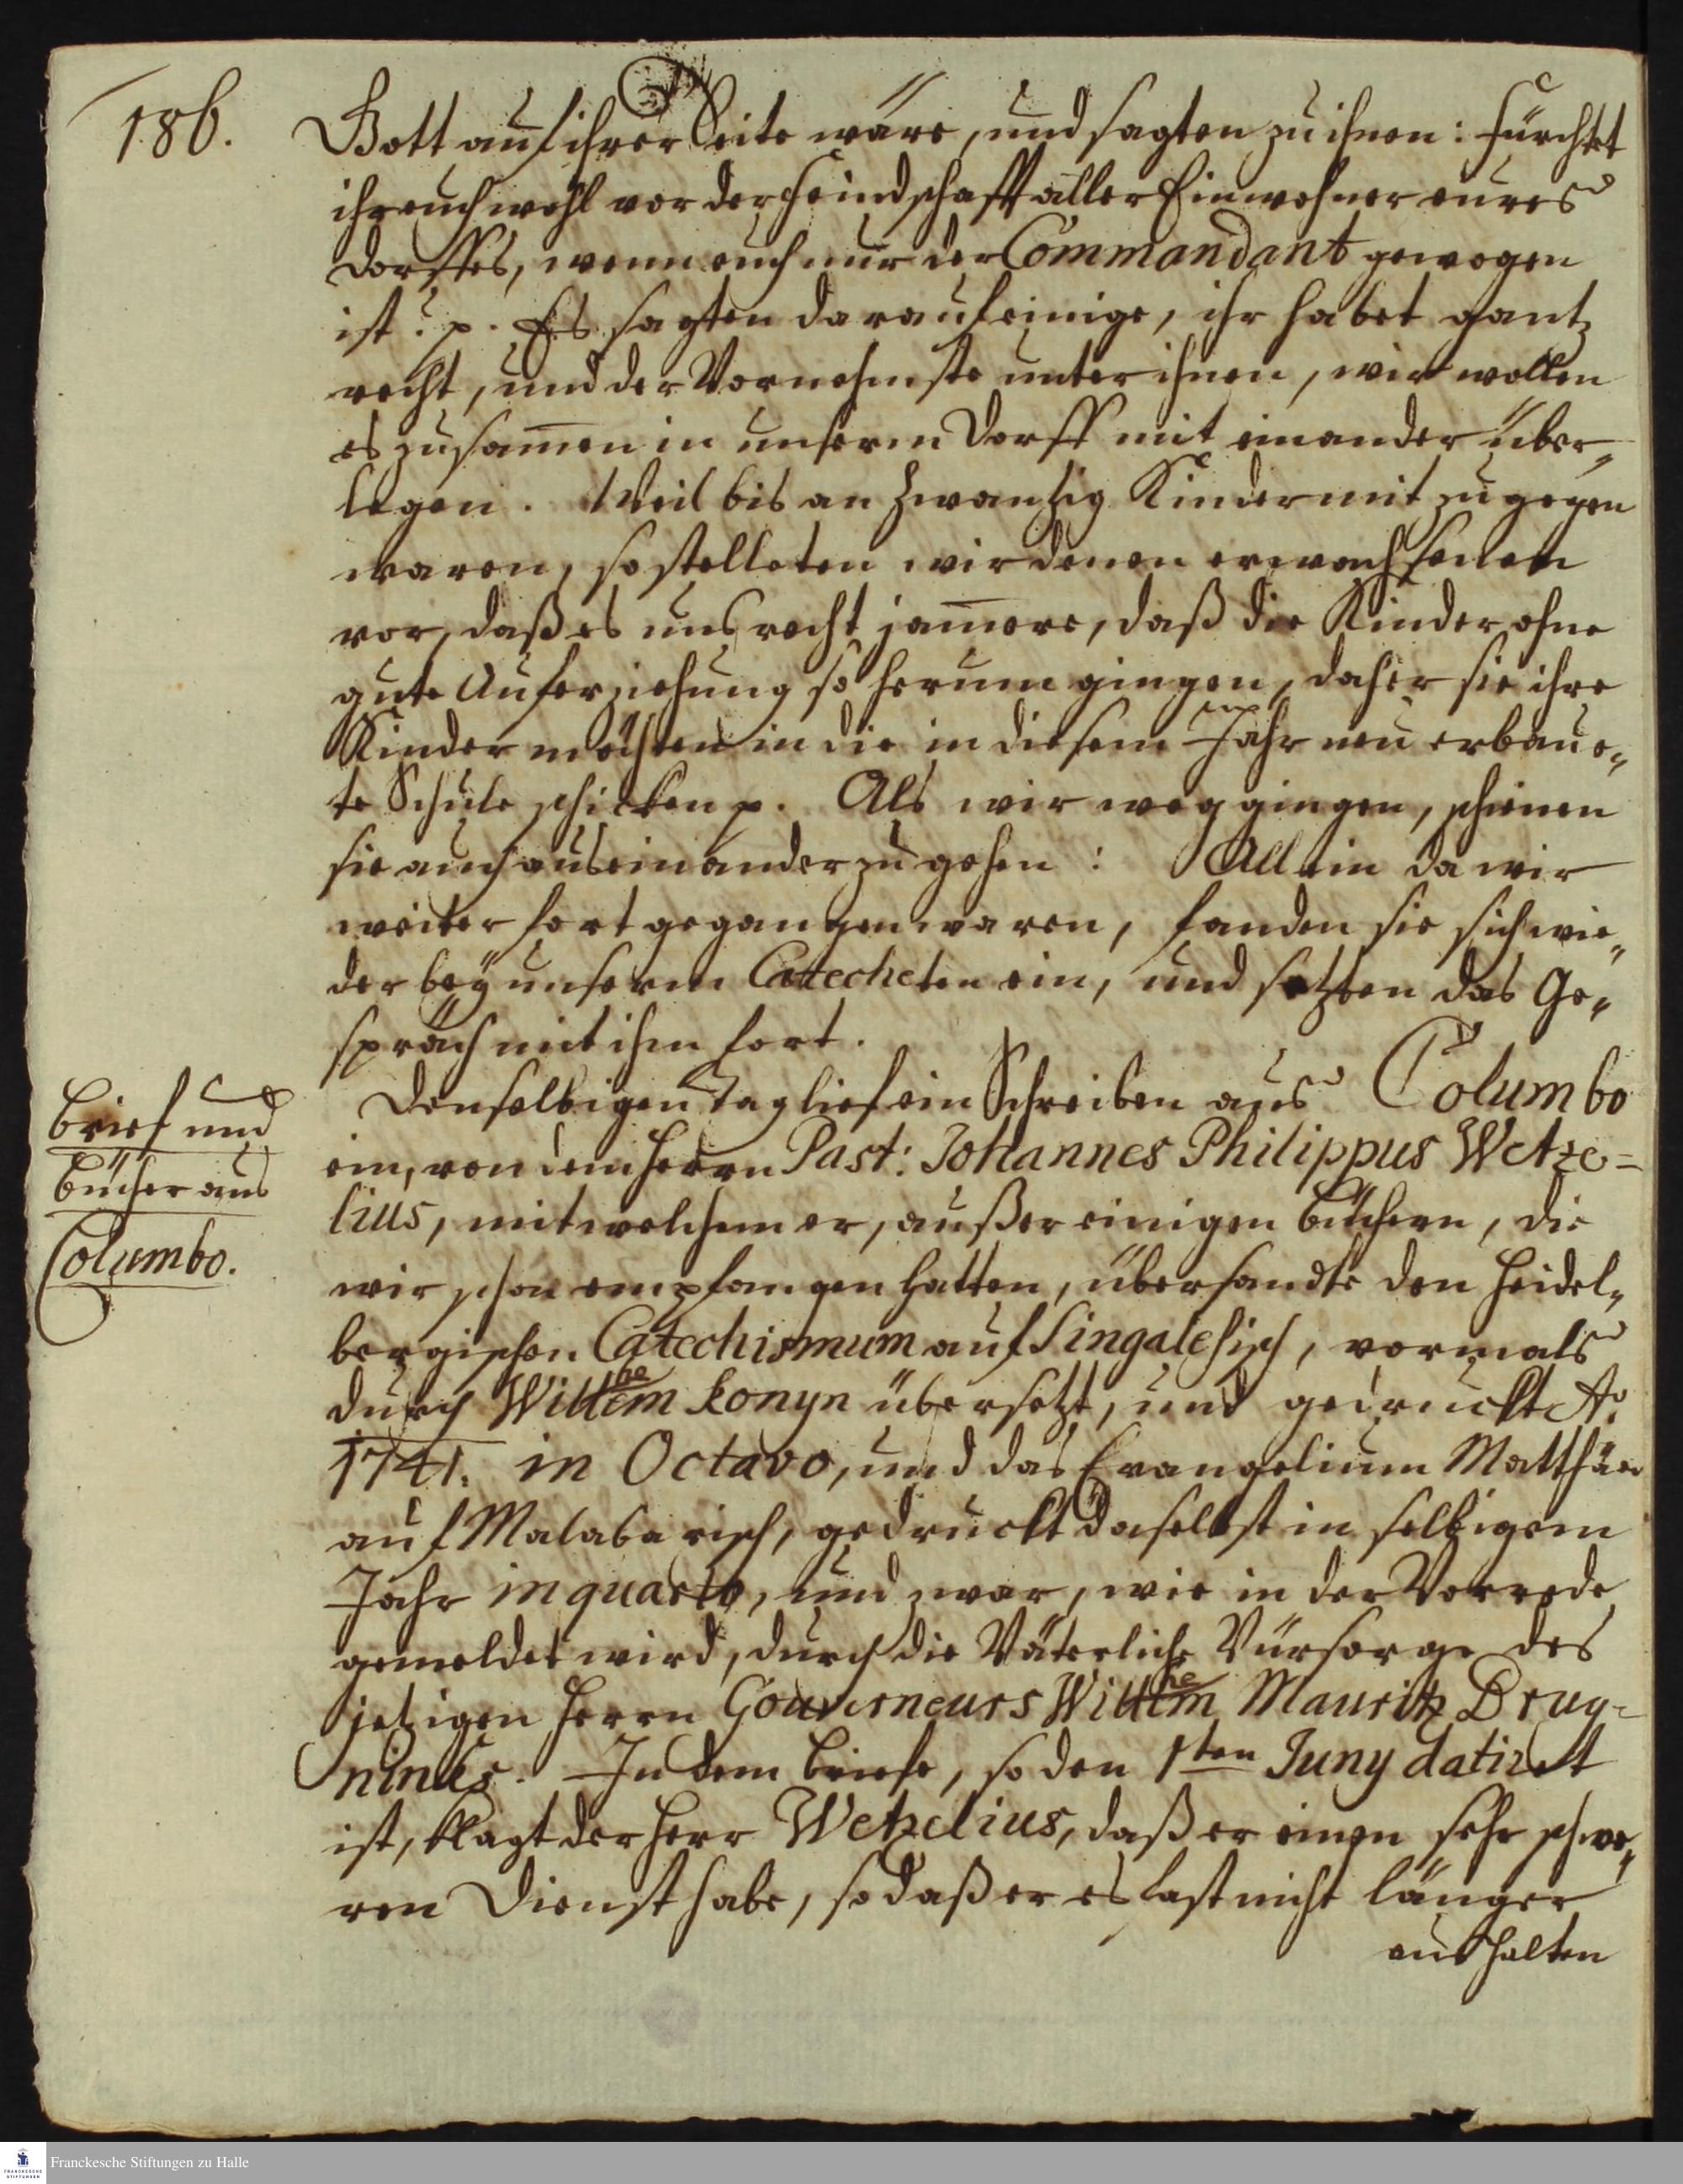 186.
Gott auf ihrer Seite wäre, und sagten zu ihnen: fürchtet
ihr euch wohl vor der Feindschafft aller Einwohner eures
Dorffes, wenn euch nur der Commandant gewogen
ist? p. Es sagten darauf einige, ihr habet gantz
recht, und der Vornehmste unter ihnen, wir wollen
es zusam̅en in unserm Dorff mit einander über„
legen. Weil bis an zwantzig Kinder mit zugegen
waren, so stelleten wir denen erwachsenen
vor, daß es uns recht jam̅ere, daß die Kinder ohne
gute Auferziehung so herum gingen, daher sie ihre
Kinder möchten in die in diesem Jahr neu erbaue„
te Schule schicken p. Als wir weggingen, schienen
sie auch auseinander zu gehen: Allein da wir
weiter fort gegangen waren, fanden sie sich wie„
der beÿ unserm Catecheten ein, und setzten das Ge„
spräch mit ihm fort.
Brief und
Bücher aus
Columbo.
Denselbigen Tag lief ein Schreiben aus Columbo
ein, von dem Herrn Past: Johannes Philippus Wetze=
lius, mit welchem er, außer einigen Büchern, die
wir schon empfangen hatten, übersandte den Heidel„
bergischen Catechismum auf Singalesisch, vormals
durch Willhem konyn übersetzt, und gedruckt Aº.
1741. in Octavo, und das Evangelium Matthäi
auf Malabarisch, gedruckt daselbst in selbigem
Jahr in quarto, und zwar, wie in der Vorrede
gemeldet wird, durch die Väterliche Vürsorge des
jetzigen Herrn Gouverneurs Willhem Mauritz Bruy=
ninks. In dem Briefe, so den 1ten Juny datiret
ist, klagt der Herr Wetzelius, daß er einen sehr schwe„
ren Dienst habe, so daß er es fast nicht länger
aushalten
FRANCKESCHE STIFTUNGEN
Franckesche Stiftungen zu Halle